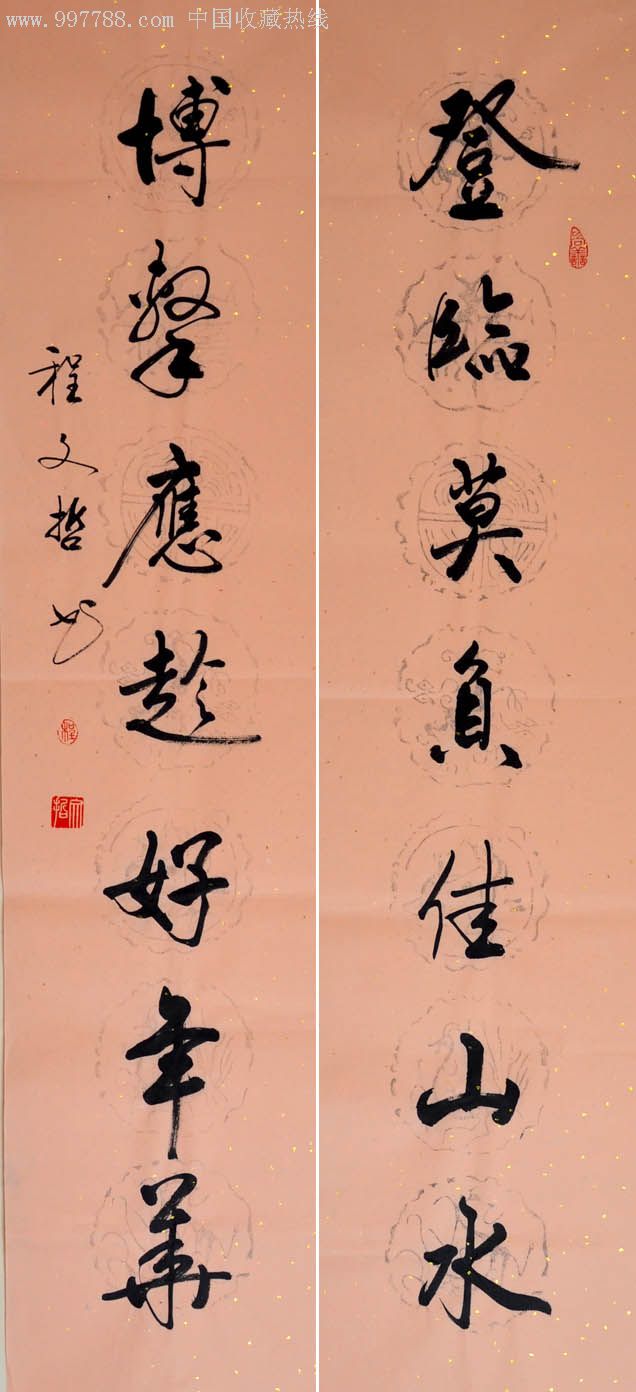 www.997788.com 中国收藏热线
登臨莫負佳山水
搏擊應趁好年華
程文哲书